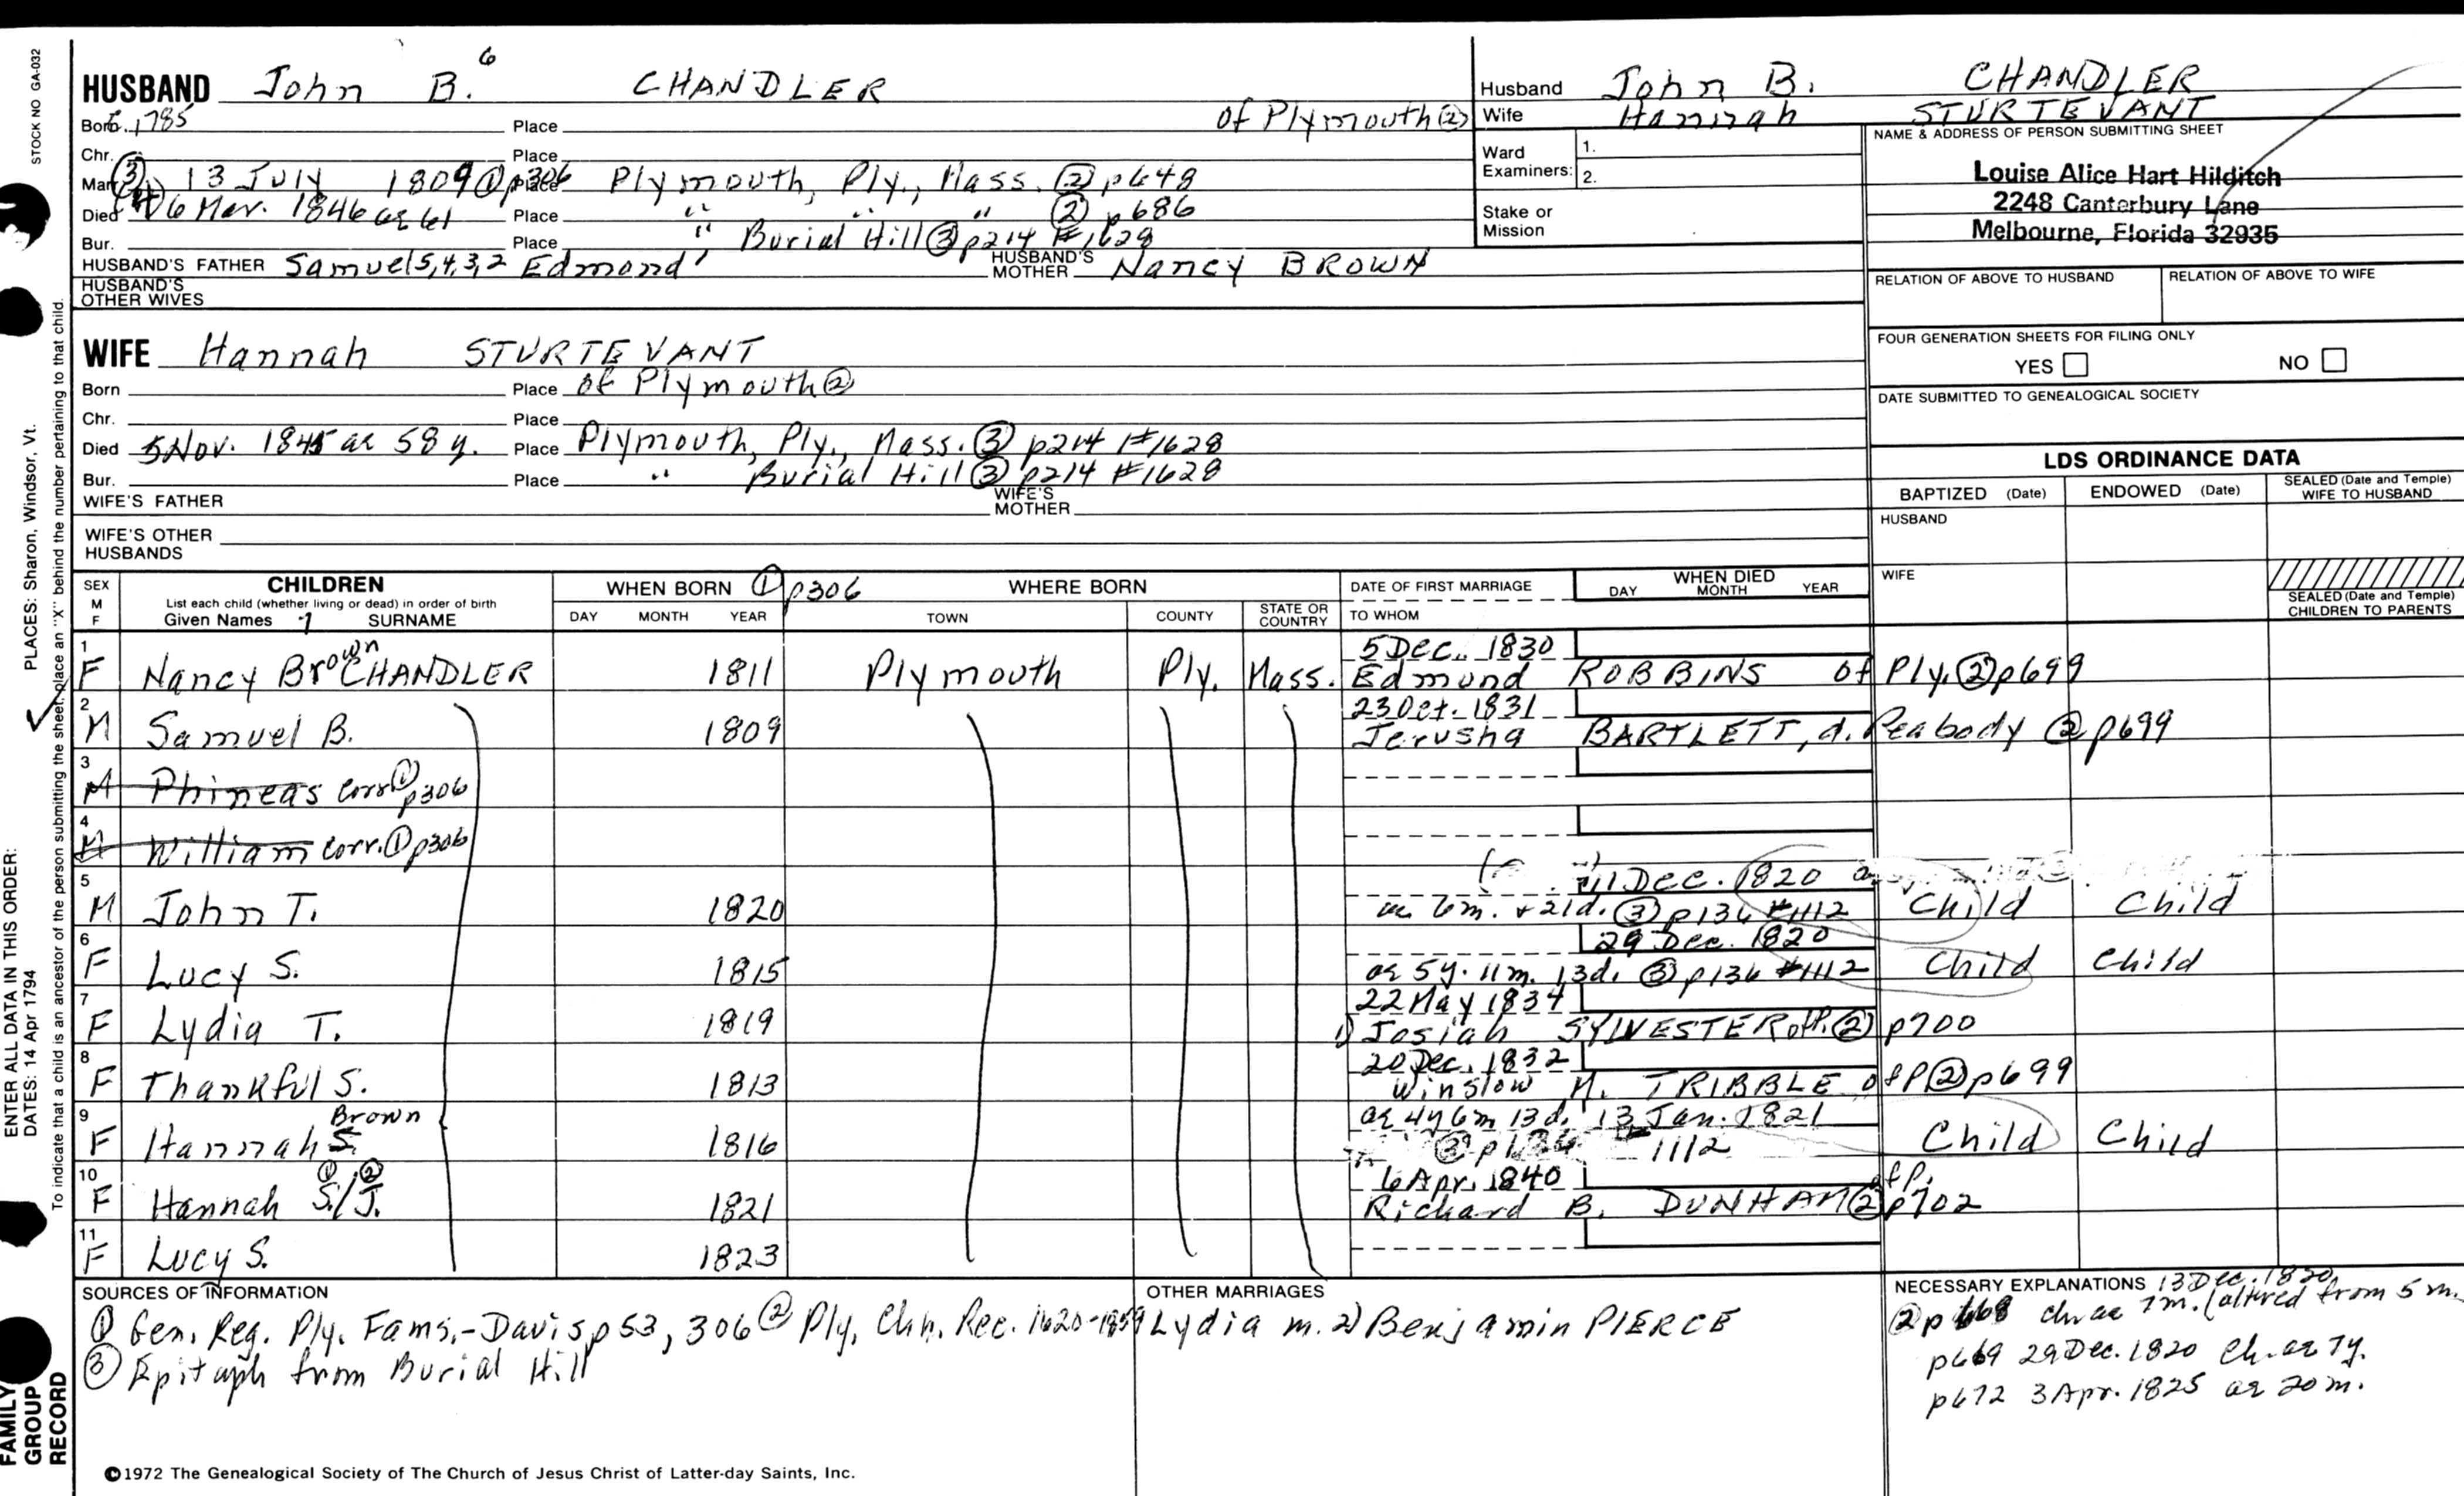 STOCK NO GA-032
HUSBAND John B. 6 CHANDLER
Born c. 1785 Place of Plymouth ②
Chr. Place
Marr. ③ 13 July 1809 ① p306 Place Plymouth, Ply., Mass. ② p648
Died 6 Mar. 1846 ae 61 Place " " " ② p686
Bur. Place " Burial Hill ③ p214 #1628
HUSBAND'S FATHER Samuel 5,4,3,2 Edmond 1 HUSBAND'S MOTHER Nancy BROWN
HUSBAND'S OTHER WIVES
Husband John B. CHANDLER
Wife Hannah STURTEVANT
Ward Examiners: 1.
2.
Stake or Mission
NAME & ADDRESS OF PERSON SUBMITTING SHEET
Louise Alice Hart Hilditch
2248 Canterbury Lane
Melbourne, Florida 32935
RELATION OF ABOVE TO HUSBAND RELATION OF ABOVE TO WIFE
FOUR GENERATION SHEETS FOR FILING ONLY
YES NO
DATE SUBMITTED TO GENEALOGICAL SOCIETY
WIFE Hannah STURTEVANT
Born Place of Plymouth ②
Chr. Place
Died 5 Nov. 1845 ae 58 y. Place Plymouth, Ply., Mass. ③ p214 #1628
Bur. Place " Burial Hill ③ p214 #1628
WIFE'S FATHER WIFE'S MOTHER
WIFE'S OTHER HUSBANDS
LDS ORDINANCE DATA
BAPTIZED (Date) ENDOWED (Date) SEALED (Date and Temple) WIFE TO HUSBAND
HUSBAND
WIFE
SEALED (Date and Temple) CHILDREN TO PARENTS
SEX M F CHILDREN WHEN BORN ① p306 WHERE BORN DATE OF FIRST MARRIAGE WHEN DIED
List each child (whether living or dead) in order of birth
Given Names 7 SURNAME DAY MONTH YEAR TOWN COUNTY STATE OR COUNTRY TO WHOM DAY MONTH YEAR
1 5 Dec. 1830
F Nancy Brown CHANDLER 1811 Plymouth Ply. Mass. Edmund ROBBINS of Ply. ② p699
2 23 Oct. 1831
M Samuel B. 1809 Jerusha BARTLETT, d. Peabody ② p699
3
M Phineas corr. ① p306
4
M William corr. ① p306
5 11 Dec. 1820
M John T. 1820 ae 6m. + 21d. ③ p136 #1112 Child Child
6 29 Dec. 1820
F Lucy S. 1815 ae 5y. 11m. 13d. ③ p136 #1112 Child Child
7 22 May 1834
F Lydia T. 1819 1) Josiah SYLVESTER of P. ② p700
8 20 Dec. 1832
F Thankful S. 1813 Winslow M. TRIBBLE of P ② p699
9 Brown ae 4y 6m 13d. 13 Jan. 1821
F Hannah S. 1816 ③ p136 #1112 Child Child
10 ① ② 6 Apr. 1840 of P.
F Hannah S./J. 1821 Richard B. DUNHAM ② p702
11
F Lucy S. 1823
SOURCES OF INFORMATION
① Gen. Reg. Ply. Fams.-Davis p53, 306 ② Ply. Chh. Rec. 1620-1859
③ Epitaph from Burial Hill
OTHER MARRIAGES
Lydia m. 2) Benjamin PIERCE
NECESSARY EXPLANATIONS 13 Dec. 1820
② p668 ch. ae 7m. (altered from 5 m.
p669 29 Dec. 1820 ch. ae 7y.
p672 3 Apr. 1825 ae 20m.
©1972 The Genealogical Society of The Church of Jesus Christ of Latter-day Saints, Inc.
ENTER ALL DATA IN THIS ORDER: PLACES: Sharon, Windsor, Vt.
DATES: 14 Apr 1794
To indicate that a child is an ancestor of the person submitting the sheet, place an "X" behind the number pertaining to that child.
FAMILY GROUP RECORD